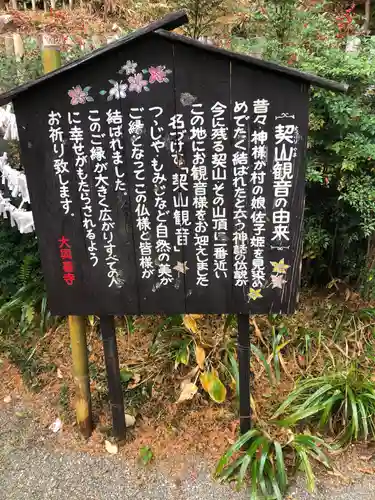 契山観音の由来
昔々神様が村の娘佐子姫を見染
めでたく結ばれたと云う神話の伝説が
今に残る契山その山頂に一番近い
この地にお観音様をお迎えしました
名づけて“契山観音”
つつじやもみじなど自然の美が
ご縁となってこの仏様と皆様が
結ばれました
このご縁が大きく広がりすべての方
に幸せがもたらされるよう
お祈り致します。
大岡寺